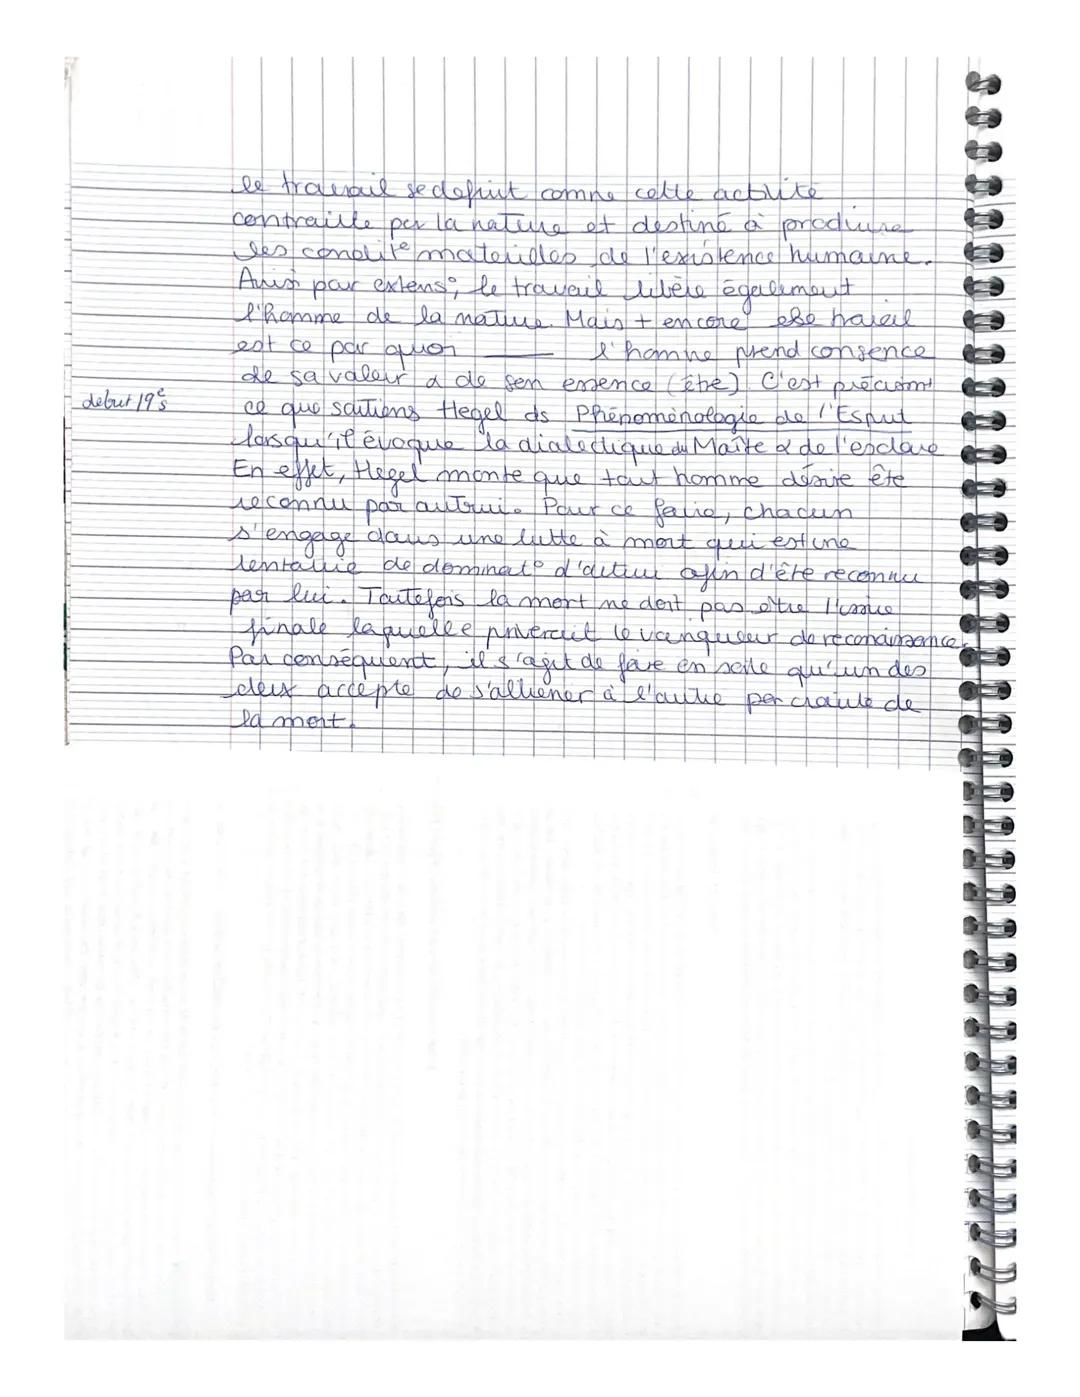 le travail se definit comme cette activité
contrainte par la nature et destiné à produire
les condit° materielles de l'existence humaine.
Ainsi par extens°, le travail libère également
l'homme de la nature. Mais + encore ese travail
est ce par quoi ____ l'homme prend consence
de sa valeur & de son essence (être). C'est précismt
debut 19e s
ce que soutiens Hegel ds Phénoménologie de l'Esprit
lorsqu'il évoque la dialectique du Maître & de l'esclave
En effet, Hegel montre que tout homme désire être
reconnu par autrui. Pour ce faire, chacun
s'engage dans une lutte à mort qui est une
tentative de dominat° d'autrui afin d'être reconnu
par lui. Toutefois la mort ne doit pas être l'issue
finale laquelle priverait le vainqueur de reconaissance.
Par conséquent, il s'agit de faire en sorte qu'un des
deux accepte de s'alliener à l'autre par crainte de
la mort.